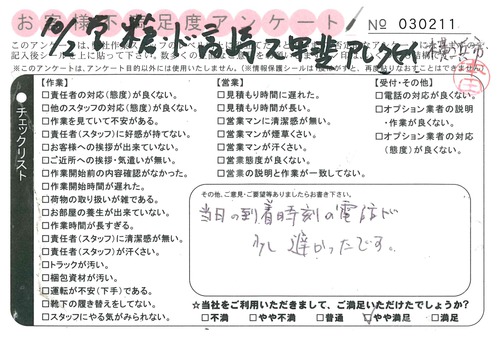 お客様不満足度アンケート
No 030211
【作業】
□責任者の対応(態度)が良くない。
□他のスタッフの対応(態度)が良くない。
□作業を見ていて不安がある。
□責任者(スタッフ)に好感が持てない。
□お客様への挨拶が出来ていない。
□ご近所への挨拶・気遣いが無い。
□作業開始前の内容確認がなかった。
□作業開始時間が遅れた。
□荷物の取り扱いが雑である。
□お部屋の養生が出来ていない。
□作業時間が長すぎる。
□責任者(スタッフ)に清潔感が無い。
□責任者(スタッフ)が汗くさい。
□トラックが汚い。
□梱包資材が汚い。
□運転が不安(下手)である。
□靴下の履き替えをしてない。
□スタッフにやる気がみられない。
【営業】
□見積もり時間に遅れた。
□見積もり時間が長い。
□営業マンに清潔感が無い。
□営業マンが煙草くさい。
□営業マンが汗くさい。
□営業態度が良くない。
□営業の説明と作業が一致してない。
【受付・その他】
□電話の対応が良くない。
□オプション業者の説明
・作業が良くない。
□オプション業者の対応
(態度)が良くない。
チェックリスト
その他、ご意見・ご要望等ありましたらお書き下さい。
当日の到着時刻の電話が
少し遅かったです。
☆当社をご利用いただきまして、ご満足いただけたでしょうか?
□不満 □やや不満 □普通 □やや満足 □満足